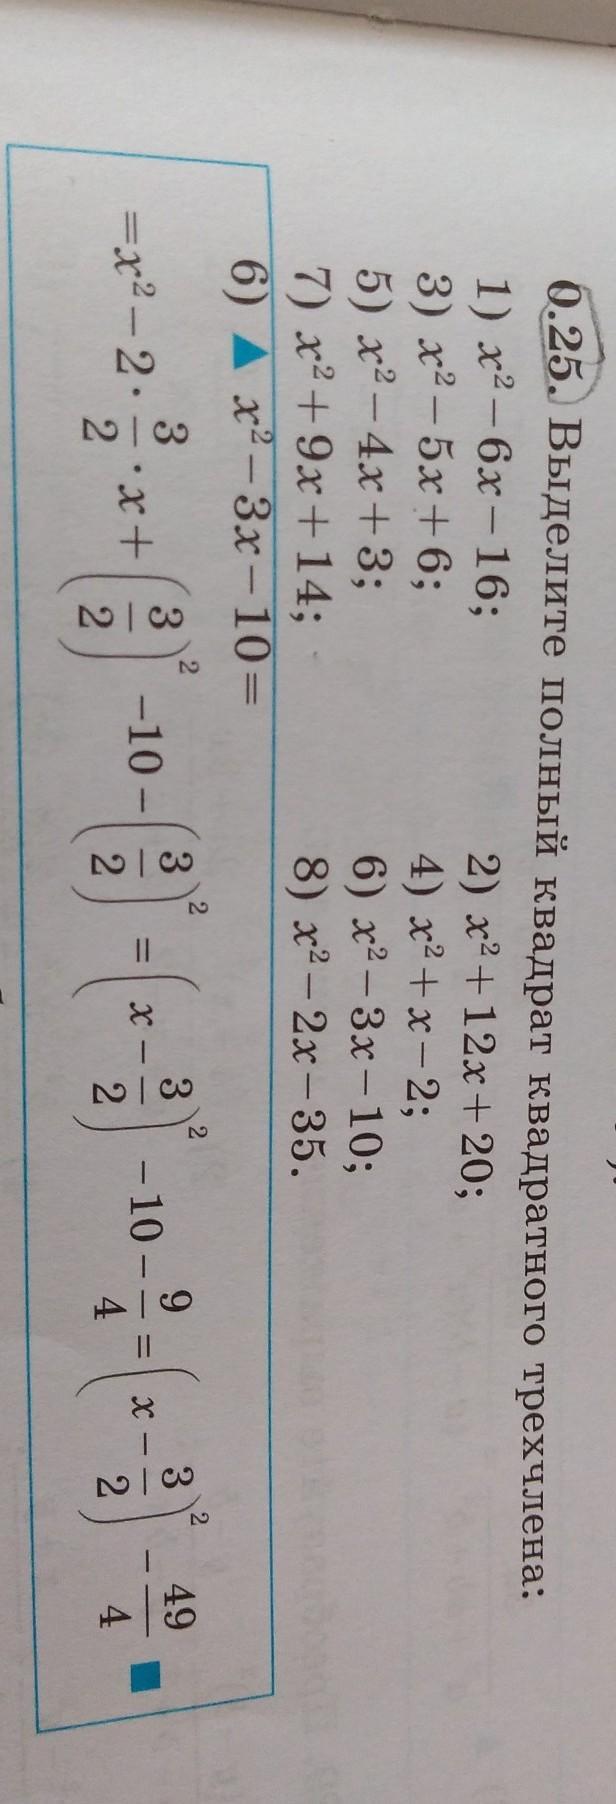 0.25. Выделите полный квадрат квадратного трехчлена:
1) x²−6x−16; 2) x²+12x+20;
3) x²−5x+6; 4) x²+x−2;
5) x²−4x+3; 6) x²−3x−10;
7) x²+9x+14; 8) x²−2x−35.
6) ▲ x²−3x−10=
=x²−2·3/2·x+(3/2)²−10−(3/2)²=(x−3/2)²−10−9/4=(x−3/2)²−49/4 ■